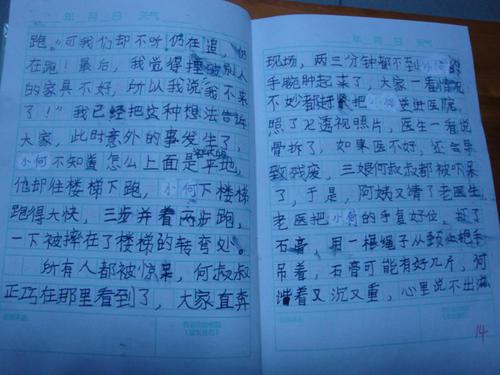 年 月 日 天气
跑。"可我们却不听仍在追,仍
在跑!最后,我觉得撞破别人
的家具不好,所以我说"我不来
了!"我已经把这种想法告诉
大家,此时意外的事发生了,
小何不知道怎么上面是平地,
他却往楼梯下跑,小何下楼梯
跑得太快,三步并着两步跑,
一下被摔在了楼梯的转弯处。
所有人都被惊呆,何叔叔
正巧在那里看到了,大家直奔
年 月 日 天气
现场,两三分钟都不到小何的
手腕肿起来了,大家一看情况
不妙都赶紧把小何送进医院,
照了X透视照片,医生一看说
骨拆了,如果医不好,还会导
致残废,三娘何叔叔都被吓呆
了,于是,阿姨又请了老医生,
老医把小何的手复好位,
石膏,用一根绳子从颈处把手
吊着,石膏可能有好几斤,何
着又沉又重,心里说不出
14